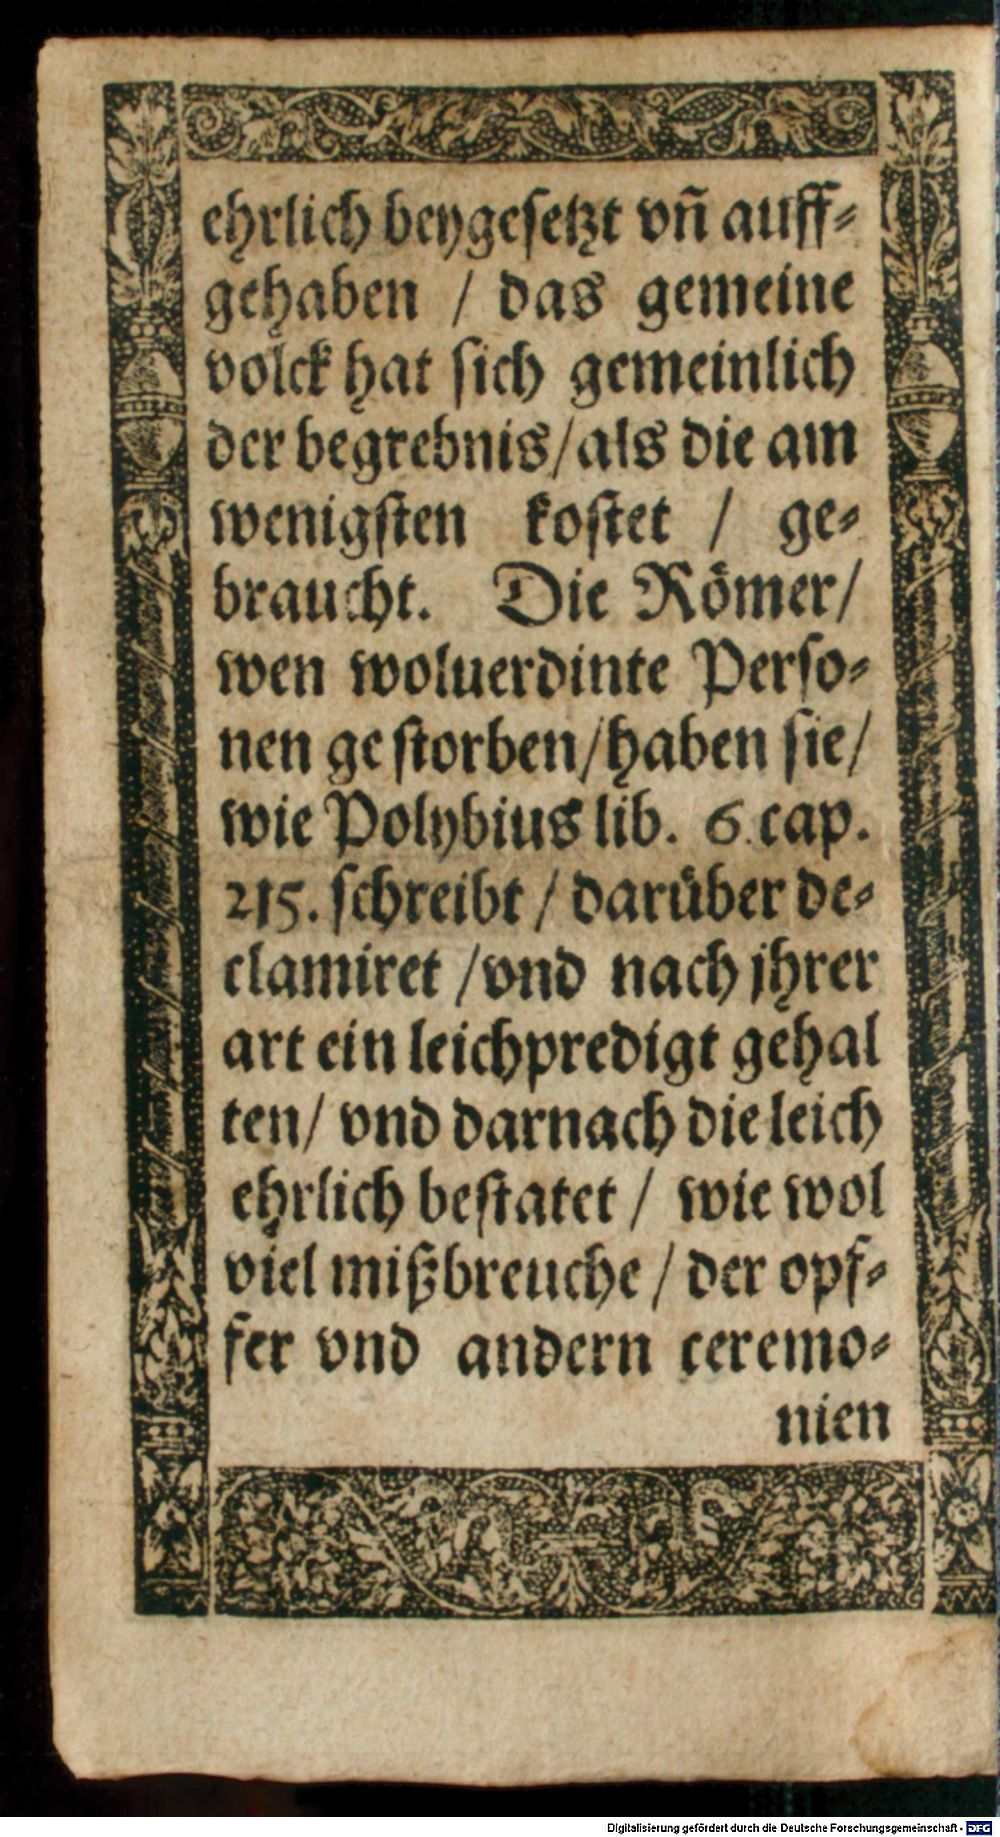 ehrlich beygesetzt vñ auff⸗
gehaben / das gemeine
volck hat sich gemeinlich
der begrebnis/als die am
wenigsten kostet / ge⸗
braucht. Die Römer/
wen woluerdinte Perso⸗
nen gestorben/haben sie/
wie Polybius lib. 6. cap.
215. schreibt / darüber de⸗
clamiret /vnd nach jhrer
art ein leichpredigt gehal
ten/ vnd darnach die leich
ehrlich bestatet / wie wol
viel mißbreuche / der opf⸗
fer vnd andern ceremo⸗
nien
Digitalisierung gefördert durch die Deutsche Forschungsgemeinschaft - DFG